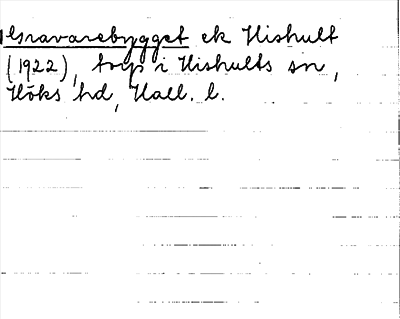 Gravarebygget ek Hishult
(1922), torp i Hishults sn,
Höks hd, Hall. l.